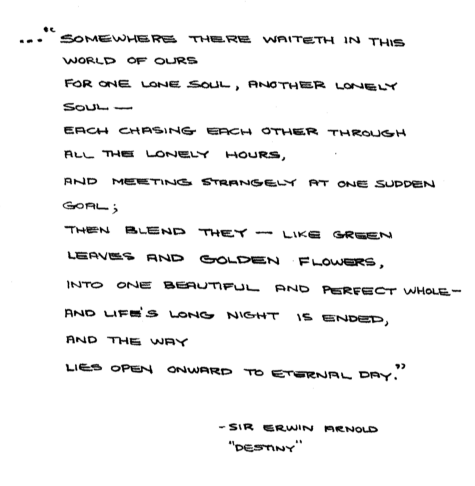 ..."SOMEWHERE THERE WAITETH IN THIS
WORLD OF OURS
FOR ONE LONE SOUL, ANOTHER LONELY
SOUL —
EACH CHASING EACH OTHER THROUGH
ALL THE LONELY HOURS,
AND MEETING STRANGELY AT ONE SUDDEN
GOAL;
THEN BLEND THEY — LIKE GREEN
LEAVES AND GOLDEN FLOWERS,
INTO ONE BEAUTIFUL AND PERFECT WHOLE —
AND LIFE'S LONG NIGHT IS ENDED,
AND THE WAY
LIES OPEN ONWARD TO ETERNAL DAY."
- SIR ERWIN ARNOLD
"DESTINY"